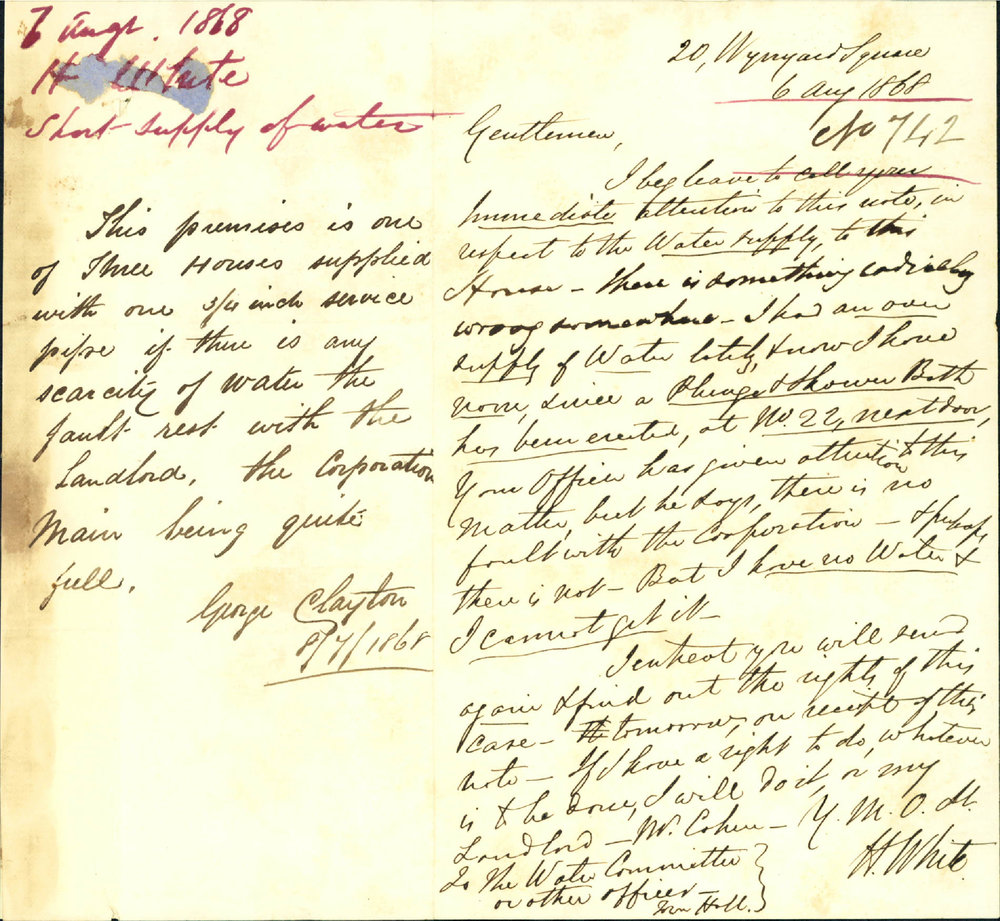 6 Augt. 1868
H White
Short supply of water
This premises is one
of Three Houses supplied
with one 3/4 inch service
pipe if there is any
scarcity of water the
fault rest with the
Landlord, the Corporation
Main being quite
full.
George Clayton
8/7/1868
20, Wynyard Square
6 aug 1868
No 742
Gentlemen,
I beg leave to call your
immediate attention to this note, in
respect to the Water supply, to this
House – there is something radically
wrong somewhere – I had an over
supply of Water lately, & now I have
none, since a Plunge & Shower Bath
has been erected, at No. 22, next door,
Your Officer has given attention to this
matter, but he says, there is no
fault with the Corporation – & perhaps
there is not – But I have no Water &
I cannot get it –
I entreat you will send
again & find out the rights of this
case – tomorrow, on receipt of this
note – If I have a right to do, whatever
is to be done, I will do it, or my
Landlord – Mr. Cohen – Y. M. O. St.
H. White
To The Water Committee
or other officer
Town Hall.